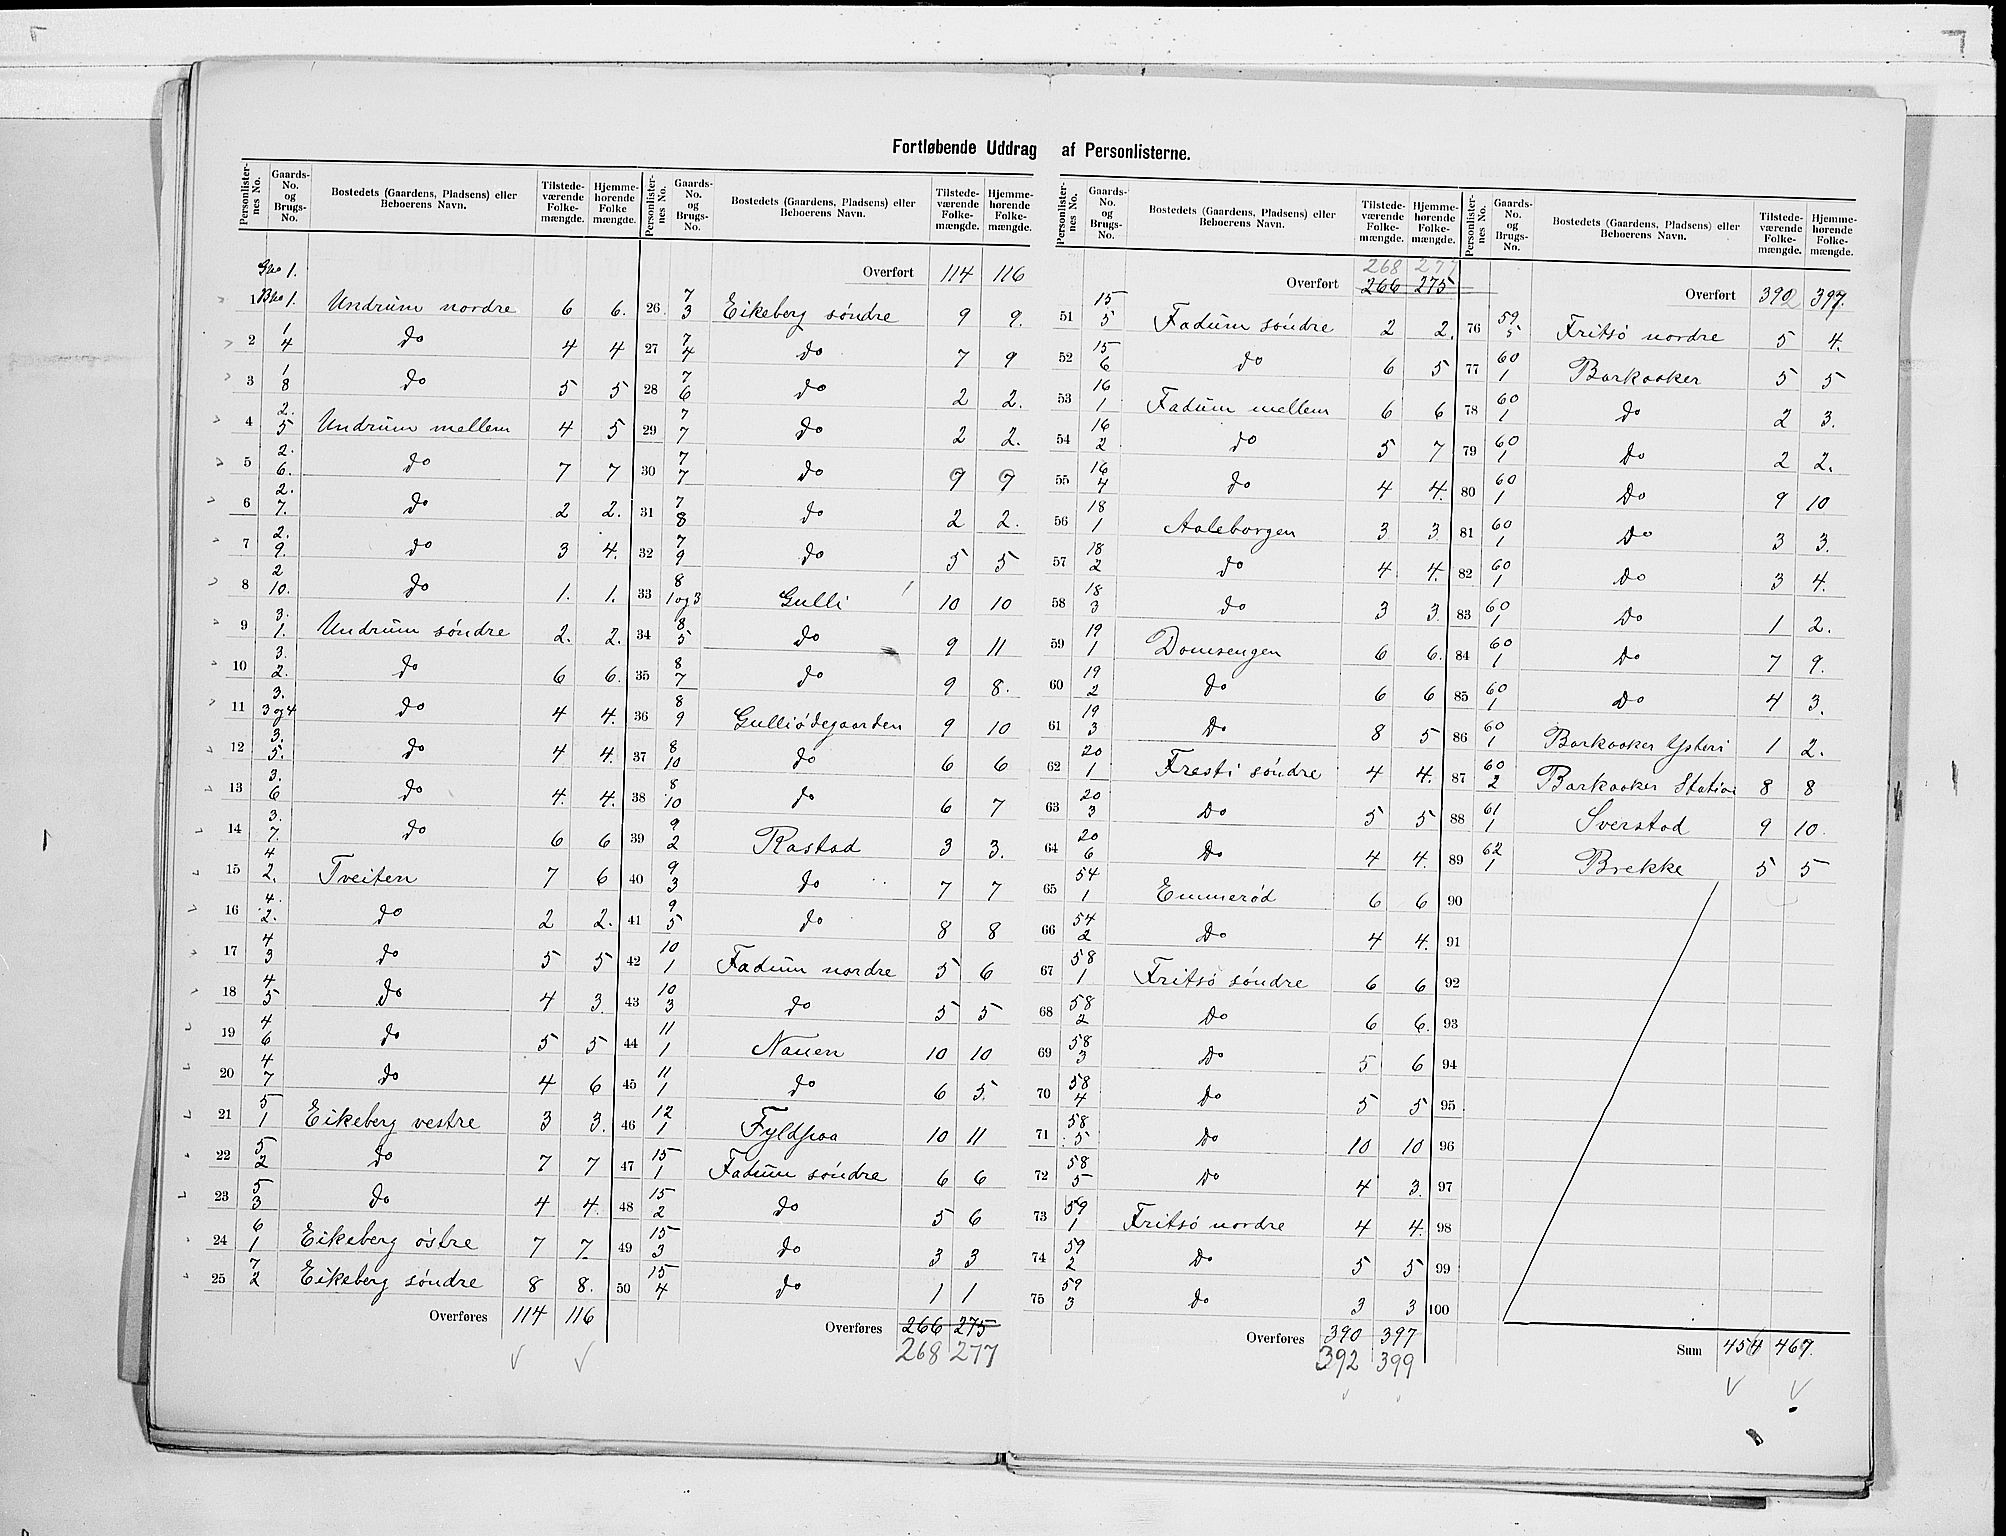 Fortløbende Uddrag af Personlisterne.
Personlisternes No. Gaards-No. og Brugs-No. Bostedets (Gaardens, Pladsens) eller Beboerens Navn. Tilstedeværende Folkemængde. Hjemmehørende Folkemængde.
Gno 1.
1 Bno 1. Undrum nordre 6 6.
2 1/4 do 4 4
3 1/8 do 5 5
4 2./5 Undrum mellem 4 5
5 2./6. do 7 7
6 2./7. do 2 2.
7 2./9. do 3 4.
8 2/10. do 1. 1.
9 3./1. Undrum søndre 2. 2.
10 3./2. do 6 6.
11 3./3 og 4 do 4 4.
12 3./5. do 4 4.
13 3./6 do 4. 4.
14 3./7. do 6 6
15 4/2. Tveiten 7 6
16 4./2. do 2 2.
17 4/3 do 5 5
18 4/5 do 4 3
19 4/6 do 5 5
20 4/7 do 4 6
21 5/1 Eikeberg vestre 3 3.
22 5/2 do 7 7
23 5/3 do 4 4.
24 6/1 Eikeberg østre 7 7
25 7/2 Eikeberg søndre 8 8.
Overføres 114 116
Personlisternes No. Gaards-No. og Brugs-No. Bostedets (Gaardens, Pladsens) eller Beboerens Navn. Tilstedeværende Folkemængde. Hjemmehørende Folkemængde.
Overført 114 116
26 7/3 Eikeberg søndre 9 9.
27 7/4 do 7 9
28 7/6 do 2 2.
29 7/7 do 2 2.
30 7/7 do 9 9
31 7/8 do 2 2.
32 7/9 do 5 5
33 8/1 og 3 Gulli 10 10
34 8/5 do 9 11
35 8/7 do 9 8.
36 8/9 Gulliødegaarden 9 10
37 8/10 do 6 6
38 8/10 do 6 7
39 9/2 Rastad 3 3.
40 9/3 do 7 7
41 9/5 do 8 8
42 10/1 Fadum nordre 5 6
43 10/3 do 5 5
44 11/1 Nauen 10 10
45 11/1 do 6 5.
46 12/1 Fyldpaa 10 11
47 15/1 Fadum søndre 6 6
48 15/2 do 5 6
49 15/3 do 3 3
50 15/4 do 1 1
Overføres 266 275
268 277
Personlisternes No. Gaards-No. og Brugs-No. Bostedets (Gaardens, Pladsens) eller Beboerens Navn. Tilstedeværende Folkemængde. Hjemmehørende Folkemængde.
268 277
Overført 266 275
51 15/5 Fadum søndre 2 2.
52 15/6 do 6 5
53 16/1 Fadum mellem 6 6
54 16/2 do 5 7
55 16/4 do 4 4.
56 18/1 Aaleborgen 3 3
57 18/2 do 4 4.
58 18/3 do 3 3.
59 19/1 Domsengen 6 6.
60 19/2 do 6 6
61 19/3 Do 8 5
62 20/1 Fresti søndre 4 4.
63 20/3 Do 5 5
64 20/6 Do 4 4.
65 54/1 Emmerød 6 6
66 54/2 Do 4 4.
67 58/1 Fritsø søndre 6 6
68 58/2 Do 6 6.
69 58/3 Do 5 6
70 58/4 Do 5 5
71 58/5 Do 10 10
72 58/5 Do 4 3.
73 59/1 Fritsø nordre 4 4.
74 59/2 Do 5 5
75 59/3 Do 3 3
Overføres 390 397
392 399
Personlisternes No. Gaards-No. og Brugs-No. Bostedets (Gaardens, Pladsens) eller Beboerens Navn. Tilstedeværende Folkemængde. Hjemmehørende Folkemængde.
Overført 392 397.
76 59/5 Fritsø nordre 5 4.
77 60/1 Barkaaker 5 5
78 60/1 Do 2 3.
79 60/1 Do 2 2.
80 60/1 Do 9 10
81 60/1 Do 3 3.
82 60/1 Do 3 4.
83 60/1 Do 1 2.
84 60/1 Do 7 9.
85 60/1 Do 4 3.
86 60/1 Barkaaker Ysteri 1 2.
87 60/2 Barkaaker Station 8 8
88 61/1 Sverstad 9 10.
89 62/1 Brekke 5 5
90
91
92
93
94
95
96
97
98
99
100
Sum 454 467.